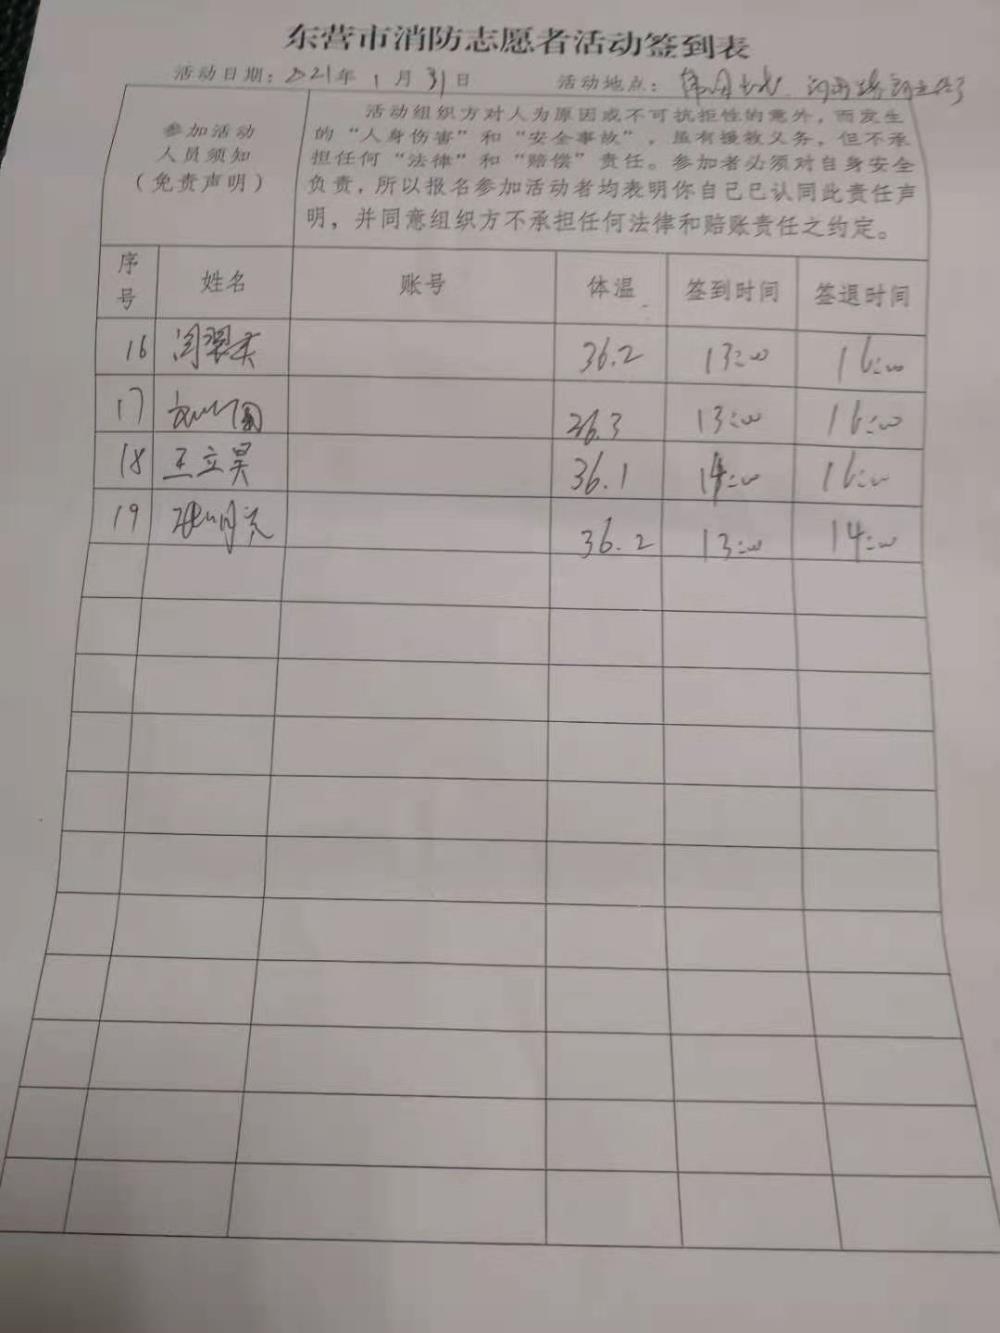 东营市消防志愿者活动签到表
活动日期：2021年 1 月 31日 活动地点：
参加活动
人员须知
（免责声明）
活动组织方对人为原因或不可抗拒性的意外，而发生
的“人身伤害”和“安全事故”，虽有援救义务，但不承
担任何“法律”和“赔偿”责任。参加者必须对自身安全
负责，所以报名参加活动者均表明你自己已认同此责任声
明，并同意组织方不承担任何法律和赔账责任之约定。
序号 姓名 账号 体温 签到时间 签退时间
16 36.2 13:00 16:00
17 36.3 13:00 16:00
18 王立昊 36.1 14:00 16:00
19 36.2 13:00 14:00